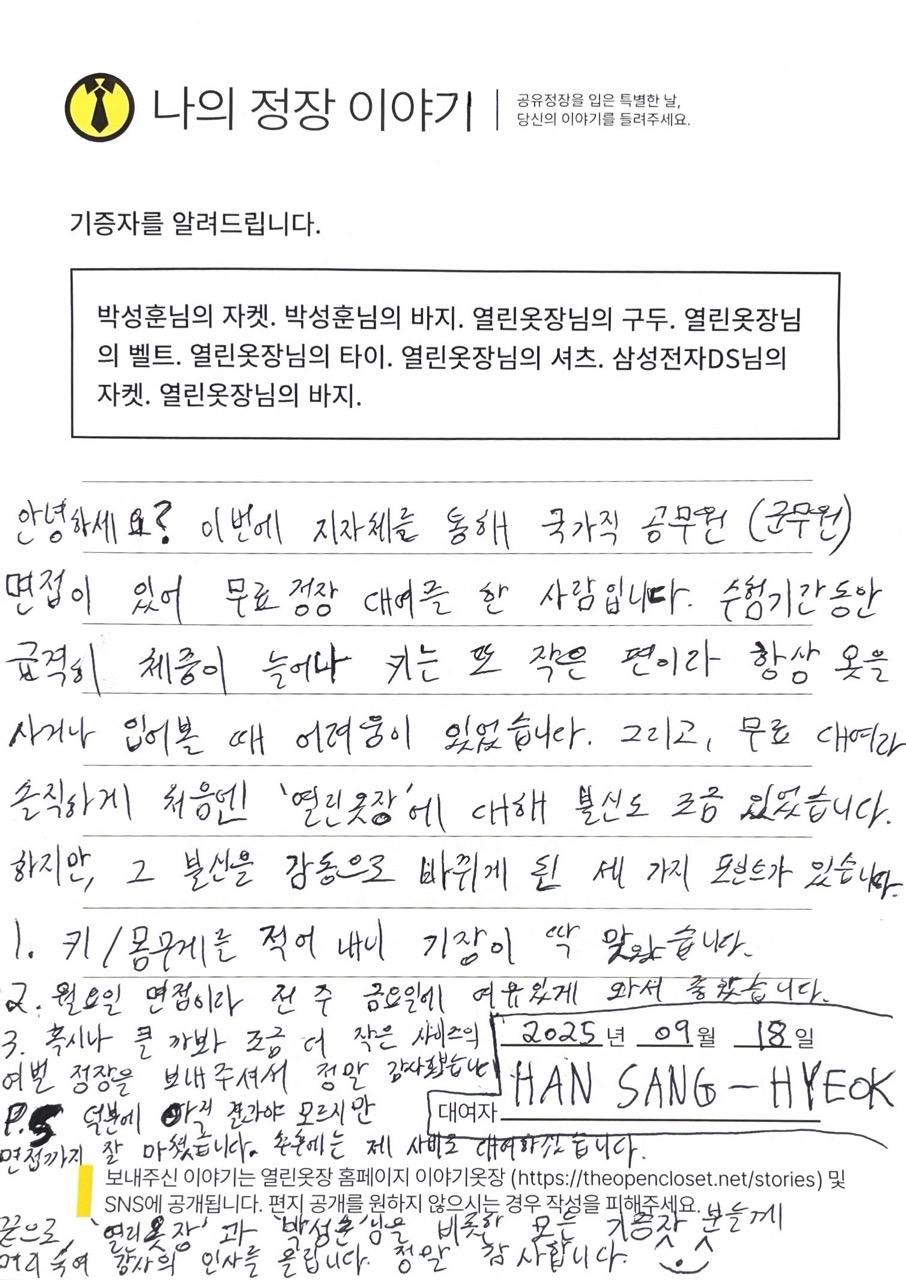 나의 정장 이야기
공유정장을 입은 특별한 날,
당신의 이야기를 들려주세요.
기증자를 알려드립니다.
박성훈님의 자켓. 박성훈님의 바지. 열린옷장님의 구두. 열린옷장님
의 벨트. 열린옷장님의 타이. 열린옷장님의 셔츠. 삼성전자DS님의
자켓. 열린옷장님의 바지.
안녕하세요? 이번에 지자체를 통해 국가직 공무원 (군무원)
면접이 있어 무료 정장 대여를 한 사람입니다. 수험기간동안
급격히 체중이 늘어나 키는 또 작은 편이라 항상 옷을
사거나 입어볼 때 어려움이 있었습니다. 그리고, 무료 대여라
솔직하게 처음엔 '열린옷장'에 대해 불신도 조금 있었습니다.
하지만, 그 불신을 감동으로 바뀌게 된 세 가지 포인트가 있습니다.
1. 키/몸무게를 적어 내니 기장이 딱 맞았습니다.
2. 월요일 면접이라 전 주 금요일에 여유있게 와서 좋았습니다.
3. 혹시나 클 까봐 조금 더 작은 사이즈의
여벌 정장을 보내주셔서 정말 감사했습니다
2025년 09월 18일
대여자 HAN SANG-HYEOK
P.S 덕분에 아직 결과야 모르지만
면접까지 잘 마쳤습니다. 추후에는 제 사비로 대여하겠습니다.
보내주신 이야기는 열린옷장 홈페이지 이야기옷장 (https://theopencloset.net/stories) 및
SNS에 공개됩니다. 편지 공개를 원하지 않으시는 경우 작성을 피해주세요.
끝으로, '열린옷장' 과 '박성훈'님을 비롯한 모든 기증자 분들께
머리 숙여 감사의 인사를 올립니다. 정말 감사합니다.